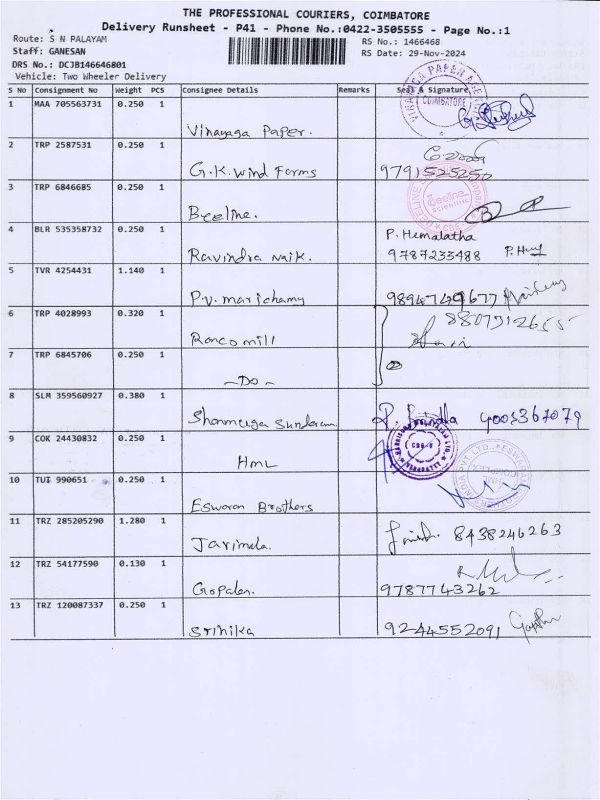 THE PROFESSIONAL COURIERS, COIMBATORE
Delivery Runsheet - P41 - Phone No.:0422-3505555 - Page No.:1
Route: S N PALAYAM RS No.: 1466468
Staff: GANESAN RS Date: 29-Nov-2024
DRS No.: DCJB146646801
Vehicle: Two Wheeler Delivery
S No Consignment No Weight PCS Consignee Details Remarks Seal & Signature
1 MAA 705563731 0.250 1
Vinayaga Paper. COIMBATORE
2 TRP 2587531 0.250 1
G.K. Wind Farms 9791525250
3 TRP 6846685 0.250 1
Beeline. Beeline Scientific
4 BLR 535358732 0.250 1 P. Hemalatha
Ravindra naik. 9787233488
5 TVR 4254431 1.140 1
P.V. marichamy 9894749677
6 TRP 4028993 0.320 1 8807512655
Ronco mill
7 TRP 6845706 0.250 1
-Do-
8 SLM 359560927 0.380 1
Shanmuga Sundaram
9 COK 24430832 0.250 1
HML
10 TUT 990651 0.250 1
Eswaran Brothers
11 TRZ 285205290 1.280 1
Jarimela. 8438246263
12 TRZ 54177590 0.130 1
Gopalan. 9787743262
13 TRZ 120087337 0.250 1
Srihika 9244552091